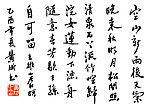 空山新雨後天氣
晚來秋明月松間照
清泉石上流竹喧歸
浣女蓮動下漁舟
隨意春芳歇王孫
自可留